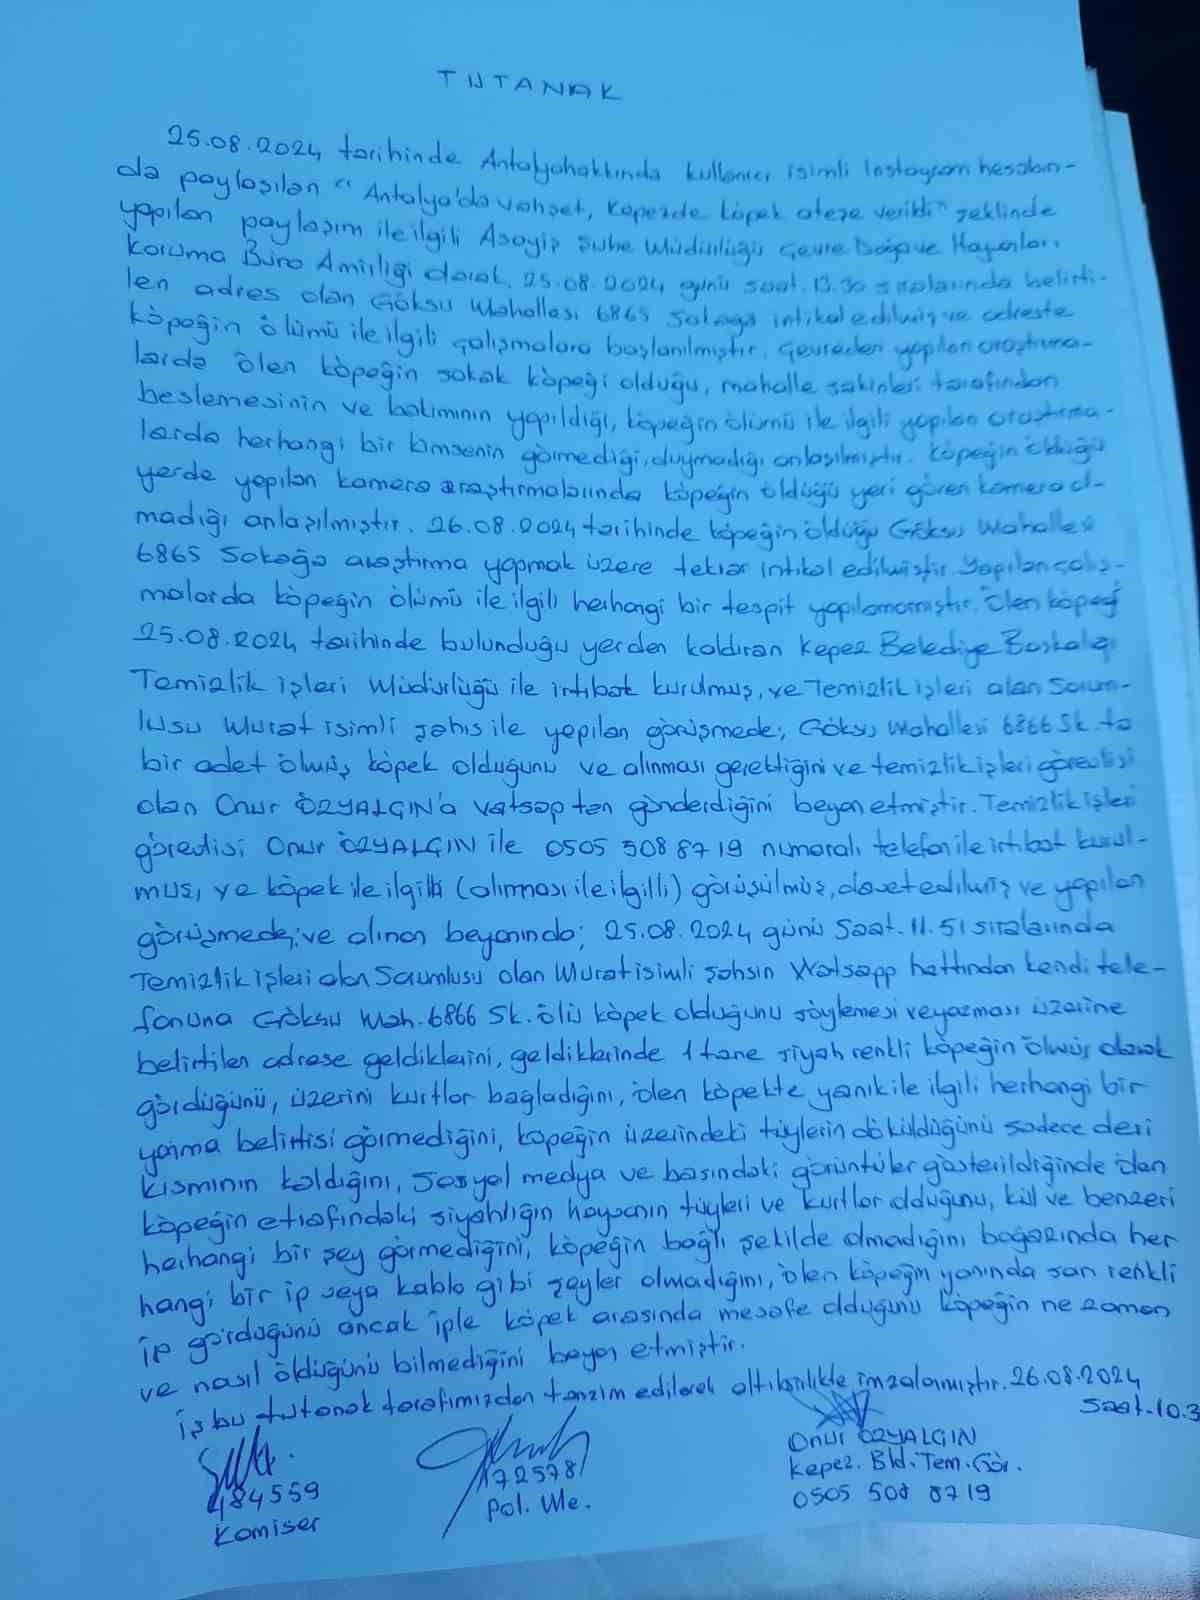 TUTANAK
25.08.2024 tarihinde Antalyahakkında kullanıcı isimli Instagram hesabın-
da paylaşılan "Antalya'da vahşet, Kepezde köpek ateşe verildi" şeklinde
yapılan paylaşım ile ilgili Asayiş Şube Müdürlüğü Çevre Doğa ve Hayvanları
Koruma Büro Amirliği olarak, 25.08.2024 günü saat. 13.30 sıralarında belirti-
len adres olan Göksu Mahallesi 6865 Sokağa intikal edilmiş ve adreste
köpeğin ölümü ile ilgili çalışmalara başlanılmıştır. Çevreden yapılan araştırma-
larda ölen köpeğin sokak köpeği olduğu, mahalle sakinleri tarafından
beslemesinin ve bakımının yapıldığı, köpeğin ölümü ile ilgili yapılan araştırma-
larda herhangi bir kimsenin görmediği, duymadığı anlaşılmıştır. Köpeğin öldüğü
yerde yapılan kamera araştırmalarında köpeğin öldüğü yeri gören kamera ol-
madığı anlaşılmıştır. 26.08.2024 tarihinde köpeğin öldüğü Göksu Mahallesi
6865 Sokağa araştırma yapmak üzere tekrar intikal edilmiştir. Yapılan çalış-
malarda köpeğin ölümü ile ilgili herhangi bir tespit yapılamamıştır. Ölen köpeği
25.08.2024 tarihinde bulunduğu yerden kaldıran Kepez Belediye Başkalığı
Temizlik işleri Müdürlüğü ile irtibat kurulmuş, ve Temizlik işleri alan Sorum-
lusu Murat isimli şahıs ile yapılan görüşmede; Göksu Mahallesi 6866 Sk. ta
bir adet ölmüş köpek olduğunu ve alınması gerektiğini ve temizlik işleri görevlisi
olan Onur ÖZYALÇIN'a vatsap ten gönderdiğini beyan etmiştir. Temizlik işleri
görevlisi Onur ÖZYALÇIN ile 0505 508 8719 numaralı telefon ile irtibat kurul-
muş, ve köpek ile ilgili (alınması ile ilgilli) görüşülmüş, davet edilmiş ve yapılan
görüşmede; ve alınan beyanında; 25.08.2024 günü Saat. 11.51 sıralarında
Temizlik işleri alan Sorumlusu olan Murat isimli şahsın Watsapp hattından kendi tele-
fonuna Göksu Mah. 6866 Sk. ölü köpek olduğunu söylemesi ve yazması üzerine
belirtilen adrese geldiklerini, geldiklerinde 1 tane siyah renkli köpeğin ölmüş olarak
gördüğünü, üzerini kurtlar bağladığını, ölen köpekte yanık ile ilgili herhangi bir
yanma belirtisi görmediğini, köpeğin üzerindeki tüylerin döküldüğünü sadece deri
kısmının kaldığını, Sosyal medya ve basındaki görüntüler gösterildiğinde ölen
köpeğin etrafındaki siyahlığın hayvanın tüyleri ve kurtlar olduğunu, kül ve benzeri
herhangi bir şey görmediğini, köpeğin bağlı şekilde olmadığını boğazında her
hangi bir ip veya kablo gibi şeyler olmadığını, ölen köpeğin yanında sarı renkli
ip gördüğünü ancak iple köpek arasında mesafe olduğunu köpeğin ne zaman
ve nasıl öldüğünü bilmediğini beyan etmiştir.
İş bu tutanak tarafımızdan tanzim edilerek altı birlikte imzalanmıştır. 26.08.2024
Saat. 10.3
484559
Komiser
172578
Pol. Me.
Onur ÖZYALÇIN
Kepez. Bld. Tem. Gör.
0505 508 8719